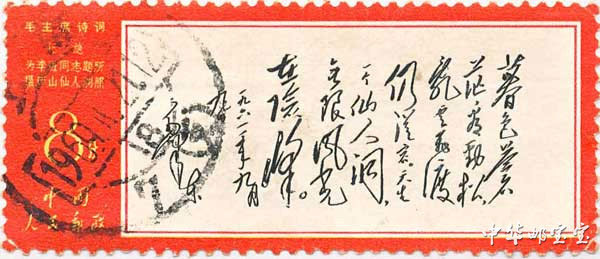 毛主席诗词
七绝
为李进同志题所
摄庐山仙人洞照
8分
中国
人民邮政
暮色蒼
茫看劲松
亂云飛渡
仍從容天生
一个仙人洞
無限風光
在險峰。
一九六一年九月
九日
毛泽东
中华邮宝宝